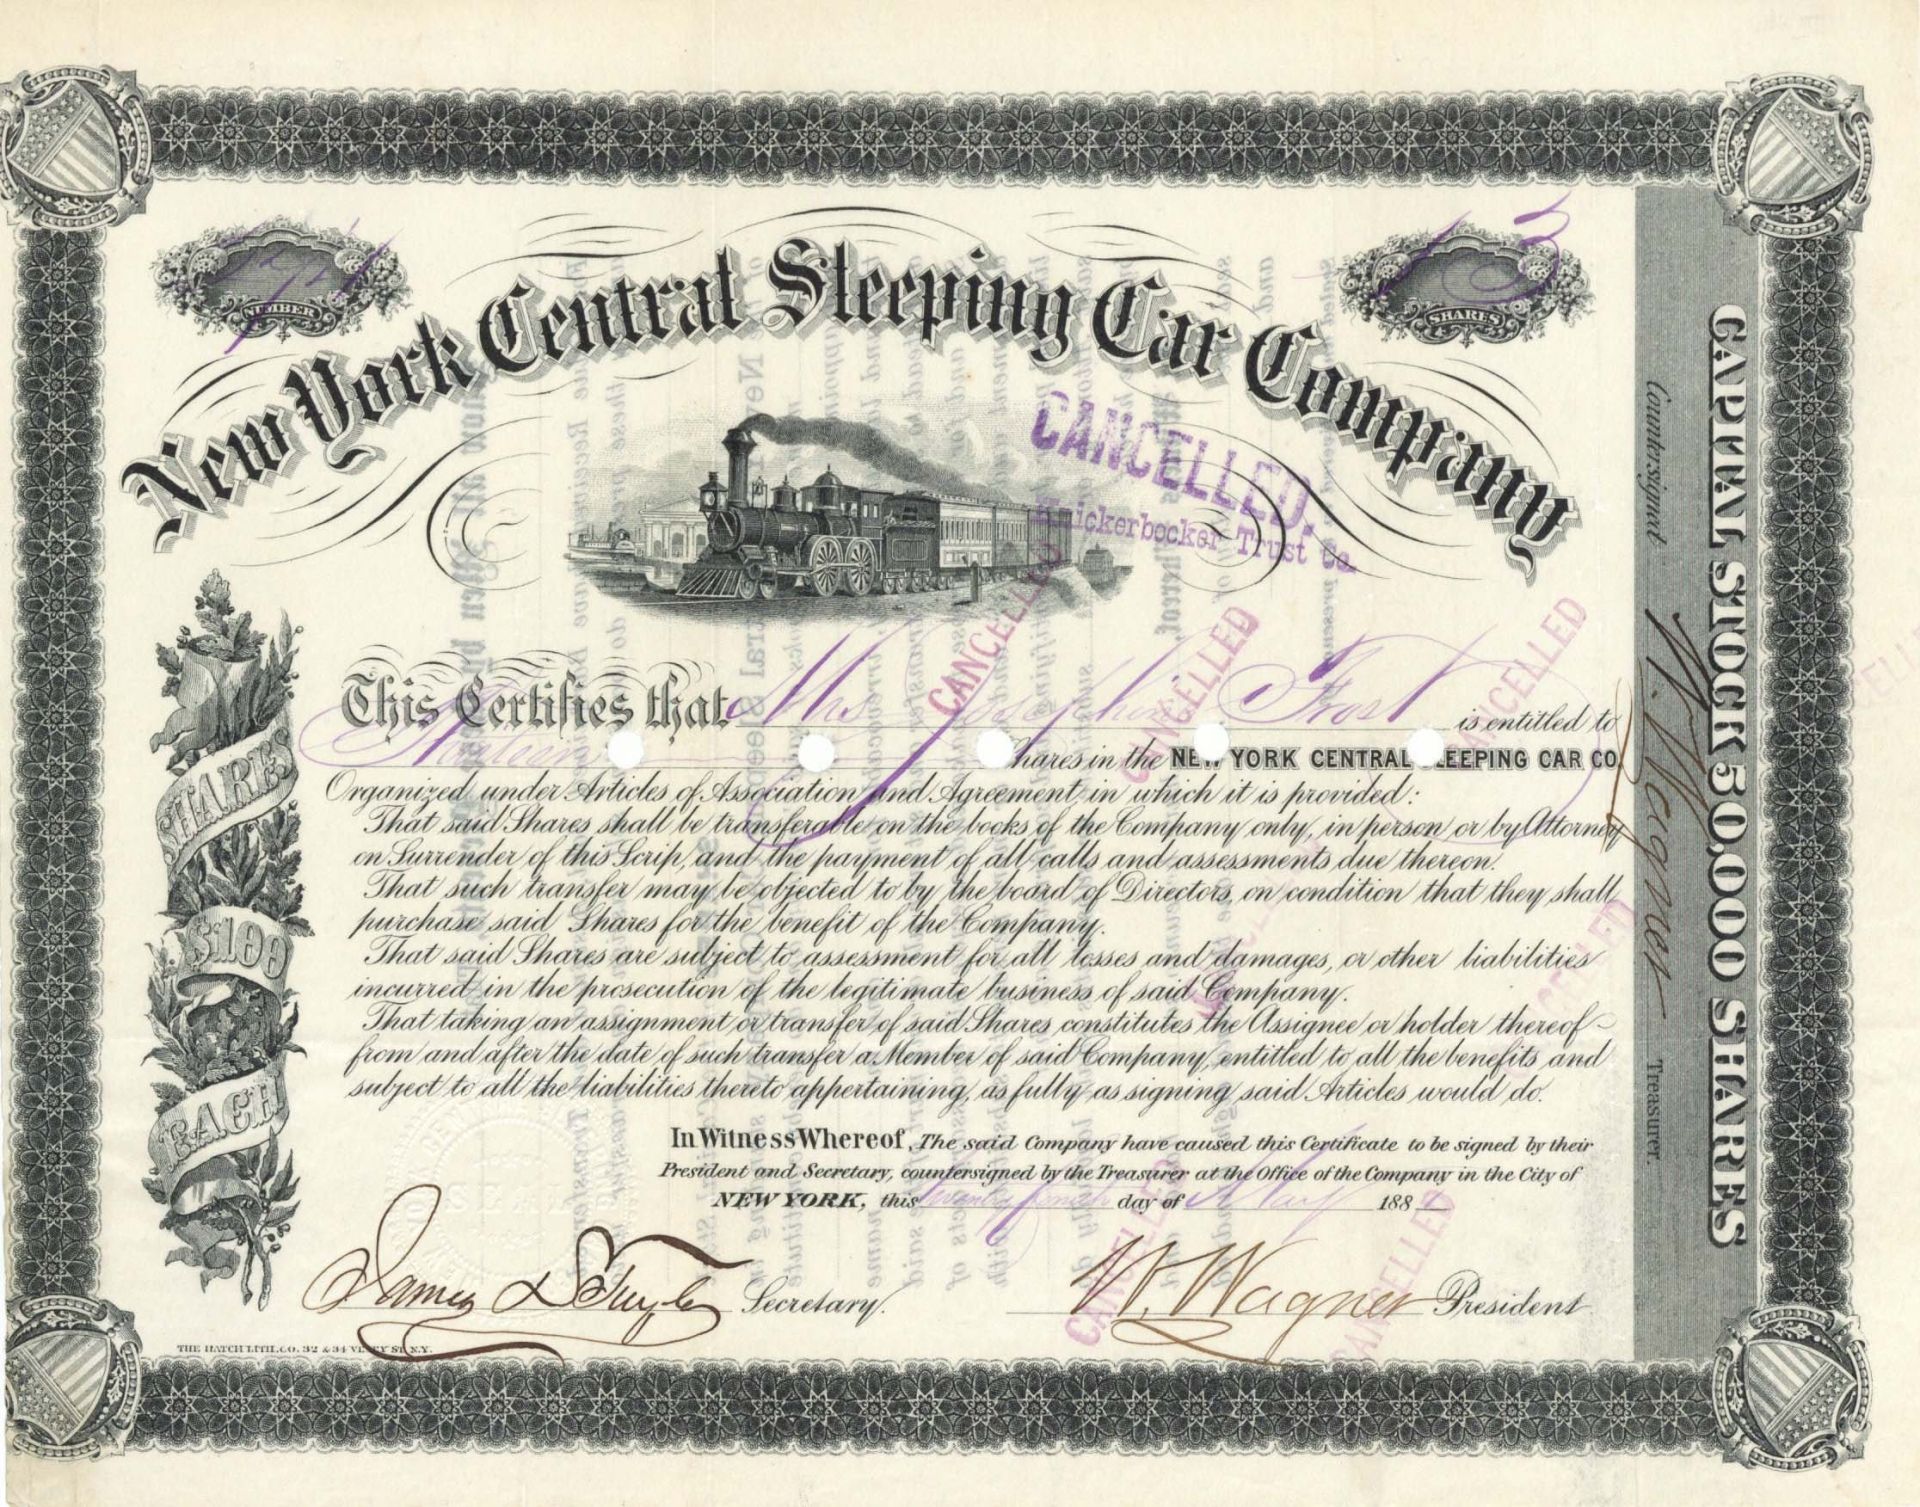 NUMBER
13
SHARES
New York Central Sleeping Car Company
CANCELLED.
Knickerbocker Trust Co
CANCELLED
CANCELLED
CANCELLED
This Certifies that Mrs Josephine Frost is entitled to
Thirteen Shares in the NEW YORK CENTRAL SLEEPING CAR CO.
Organized under Articles of Association and Agreement, in which it is provided:
That said Shares shall be transferable on the books of the Company only, in person or by Attorney
on Surrender of this Scrip, and the payment of all calls and assessments due thereon.
That such transfer may be objected to by the board of Directors, on condition that they shall
purchase said Shares for the benefit of the Company.
That said Shares are subject to assessment for all losses and damages, or other liabilities
incurred in the prosecution of the legitimate business of said Company.
That taking an assignment or transfer of said Shares constitutes the Assignee or holder thereof
from and after the date of such transfer a Member of said Company, entitled to all the benefits and
subject to all the liabilities thereto appertaining, as fully as signing said Articles would do.
In Witness Whereof, The said Company have caused this Certificate to be signed by their
President and Secretary, countersigned by the Treasurer at the Office of the Company in the City of
NEW YORK, this day of May 188
CANCELLED
CANCELLED
CANCELLED
CANCELLED
Secretary.
W. Wagner President
THE HATCH LITH. CO. 32 & 34 VESEY ST. N.Y.
SHARES
$100
EACH
Countersigned W. Wagner Treasurer.
CAPITAL STOCK 50,000 SHARES